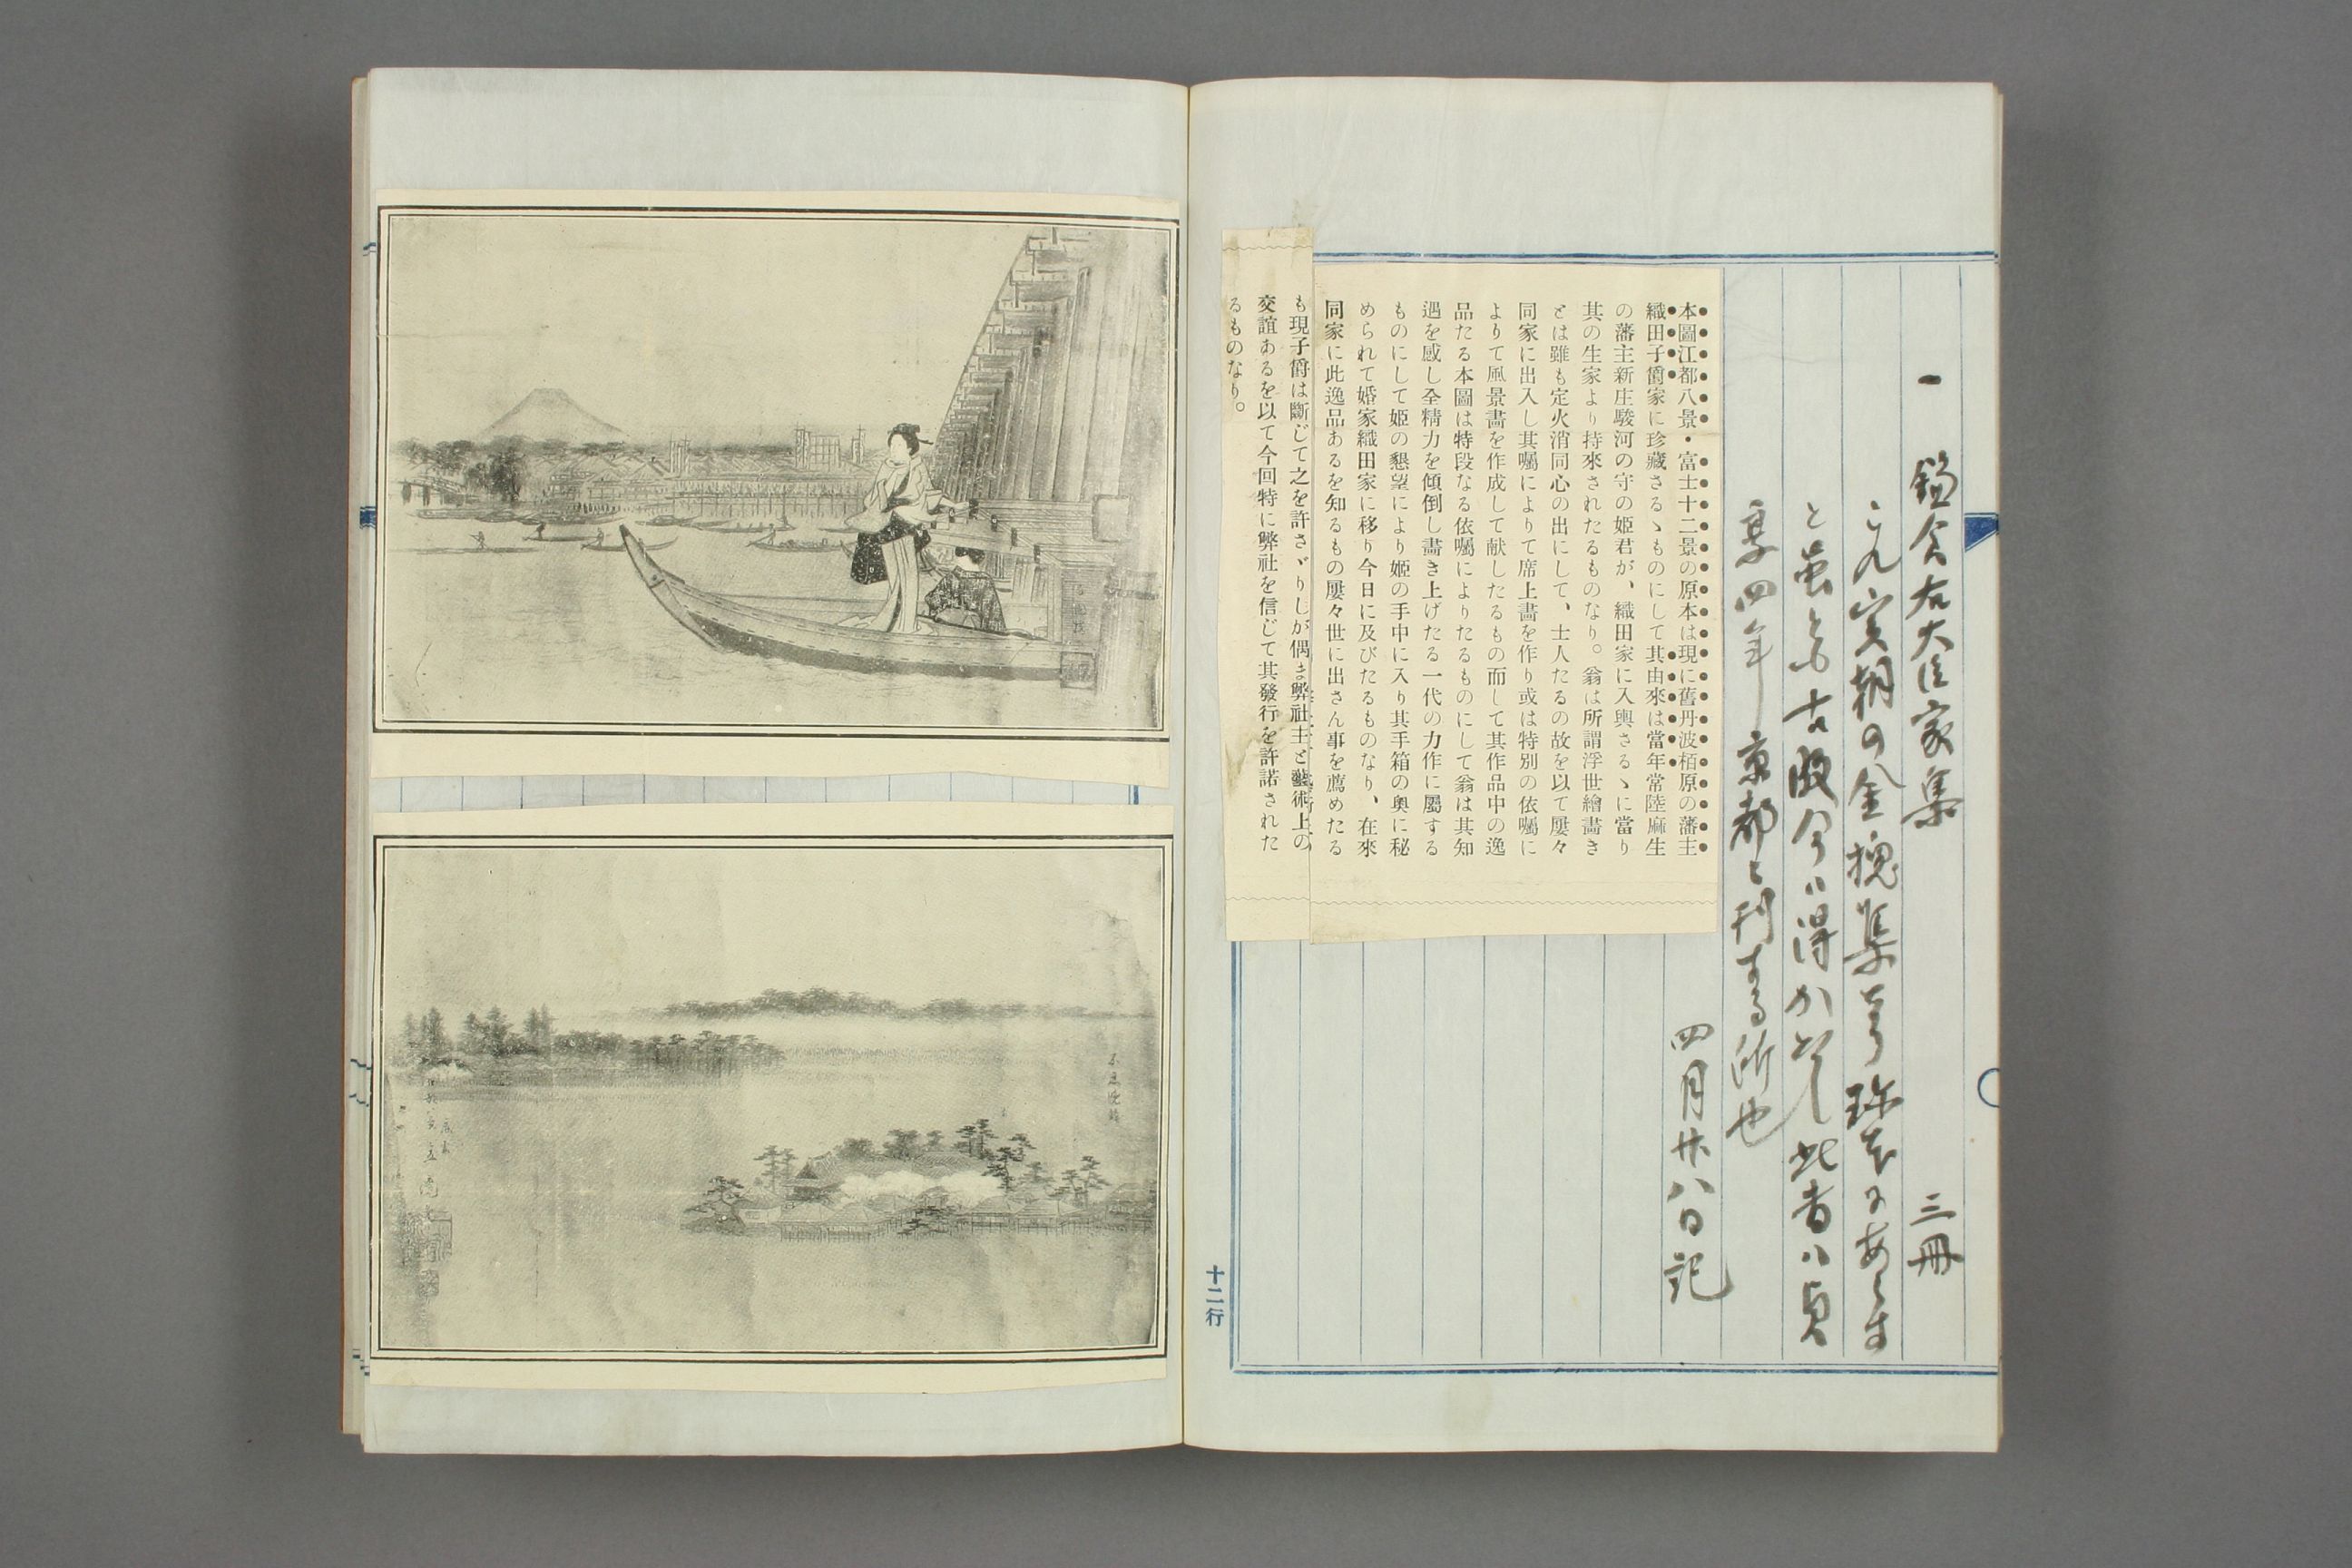 一 鎌倉右大臣家集 三冊
これ実朝の金槐集なり珍本にあらす
と雖とも古版今ハ得かたし此書ハ貞
享四年京都ニ刊する所也
四月廿八日記
本圖江都八景・富士十二景の原本は現に舊丹波栢原の藩主
織田子爵家に珍藏さるゝものにして其由來は當年常陸麻生
の藩主新庄駿河の守の姫君が、織田家に入輿さるゝに當り
其の生家より持來されたるものなり。翁は所謂浮世繪畵き
とは雖も定火消同心の出にして、士人たるの故を以て屢々
同家に出入し其囑によりて席上畵を作り或は特別の依囑に
よりて風景畵を作成して献したるもの而して其作品中の逸
品たる本圖は特段なる依囑によりたるものにして翁は其知
遇を感し全精力を傾倒し畵き上げたる一代の力作に屬する
ものにして姫の懇望により姫の手中に入り其手箱の奥に秘
められて婚家織田家に移り今日に及びたるものなり、在來
同家に此逸品あるを知るもの屢々世に出さん事を薦めたる
も現子爵は斷じて之を許さゞりしが偶ま弊社主と藝術上の
交誼あるを以て今回特に弊社を信じて其發行を許諾された
るものなり。
十二行